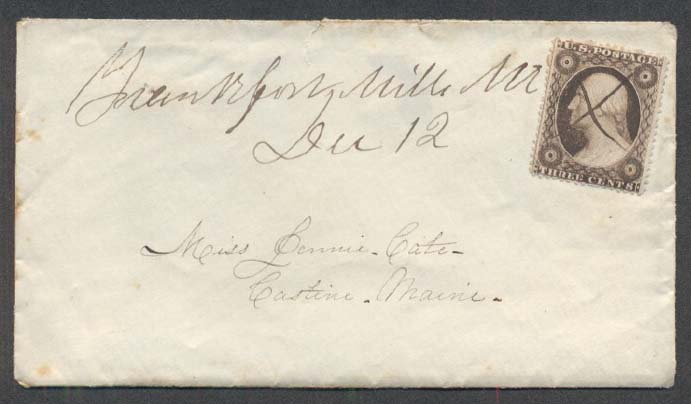 Frankfort Mills Me
Dec 12
U.S. POSTAGE
THREE CENTS
Miss Jennie Cate
Castine Maine